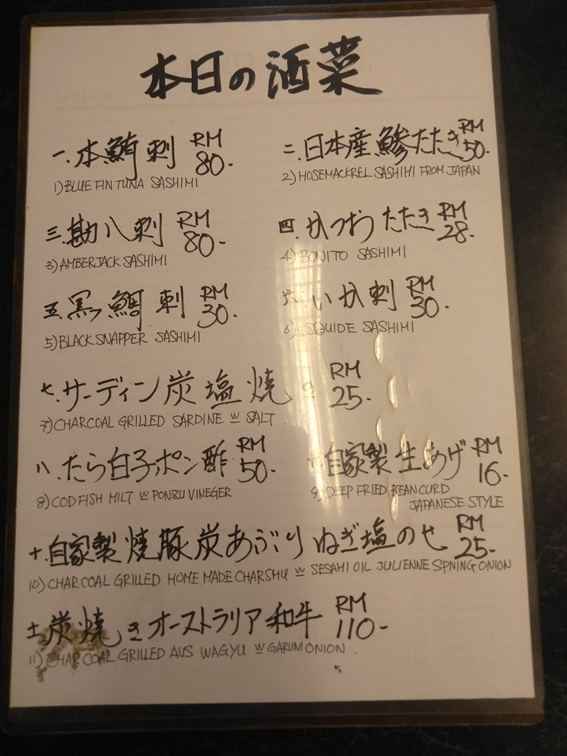 本日の酒菜
一、本鮪刺 RM 80-
1) BLUE FIN TUNA SASHIMI
二、日本産鯵たたき RM 50-
2) HOSEMACKREL SASHIMI FROM JAPAN
三、勘八刺 RM 80-
3) AMBERJACK SASHIMI
四、かつおたたき RM 28-
4) BONITO SASHIMI
五、黒鯛刺 RM 30-
5) BLACK SNAPPER SASHIMI
六、いか刺 RM 30-
6) SQUIDE SASHIMI
七、サーディン炭塩焼き RM 25-
7) CHARCOAL GRILLED SARDINE W SALT
八、たら白子ポン酢 RM 50-
8) COD FISH MILT W PONZU VINEGER
自家製生あげ RM 16-
9) DEEP FRIED BEANCURD
JAPANESE STYLE
十、自家製焼豚炭あぶりねぎ塩のせ RM 25-
10) CHARCOAL GRILLED HOME MADE CHARSHU W SESAMI OIL JULIENNE SPNING ONION
十一 炭焼きオーストラリア和牛 RM 110-
11) CHARCOAL GRILLED AUS WAGYU W GARUM ONION